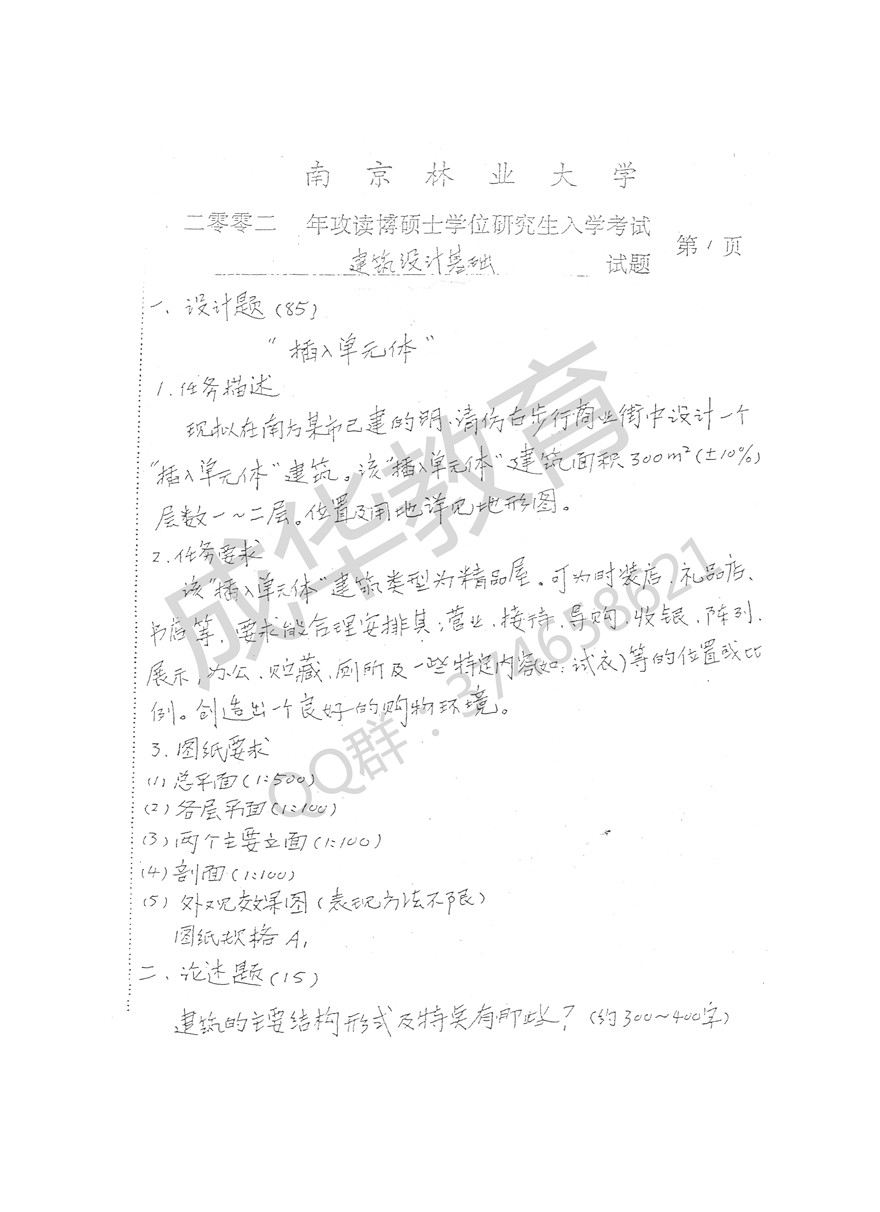 南 京 林 业 大 学
二零零二 年攻读博硕士学位研究生入学考试
建筑设计基础 试题 第1页
一、设计题(85)
"插入单元体"
1.任务描述
现拟在南方某市已建的明、清仿古步行商业街中设计一个
"插入单元体"建筑。该"插入单元体"建筑面积300m²(±10%)
层数一~二层。位置及用地详见地形图。
2.任务要求
该"插入单元体"建筑类型为精品屋。可为时装店、礼品店、
书店等,要求能合理安排其:营业、接待、导购、收银、陈列、
展示、办公、贮藏、厕所及一些特定内容(如:试衣)等的位置或比
例。创造出一个良好的购物环境。
3.图纸要求
(1)总平面(1:500)
(2)各层平面(1:100)
(3)两个主要立面(1:100)
(4)剖面(1:100)
(5)外观效果图(表现方法不限)
图纸规格A1
二、论述题(15)
建筑的主要结构形式及特点有那些?(约300~400字)
成华教育
QQ群:374638621